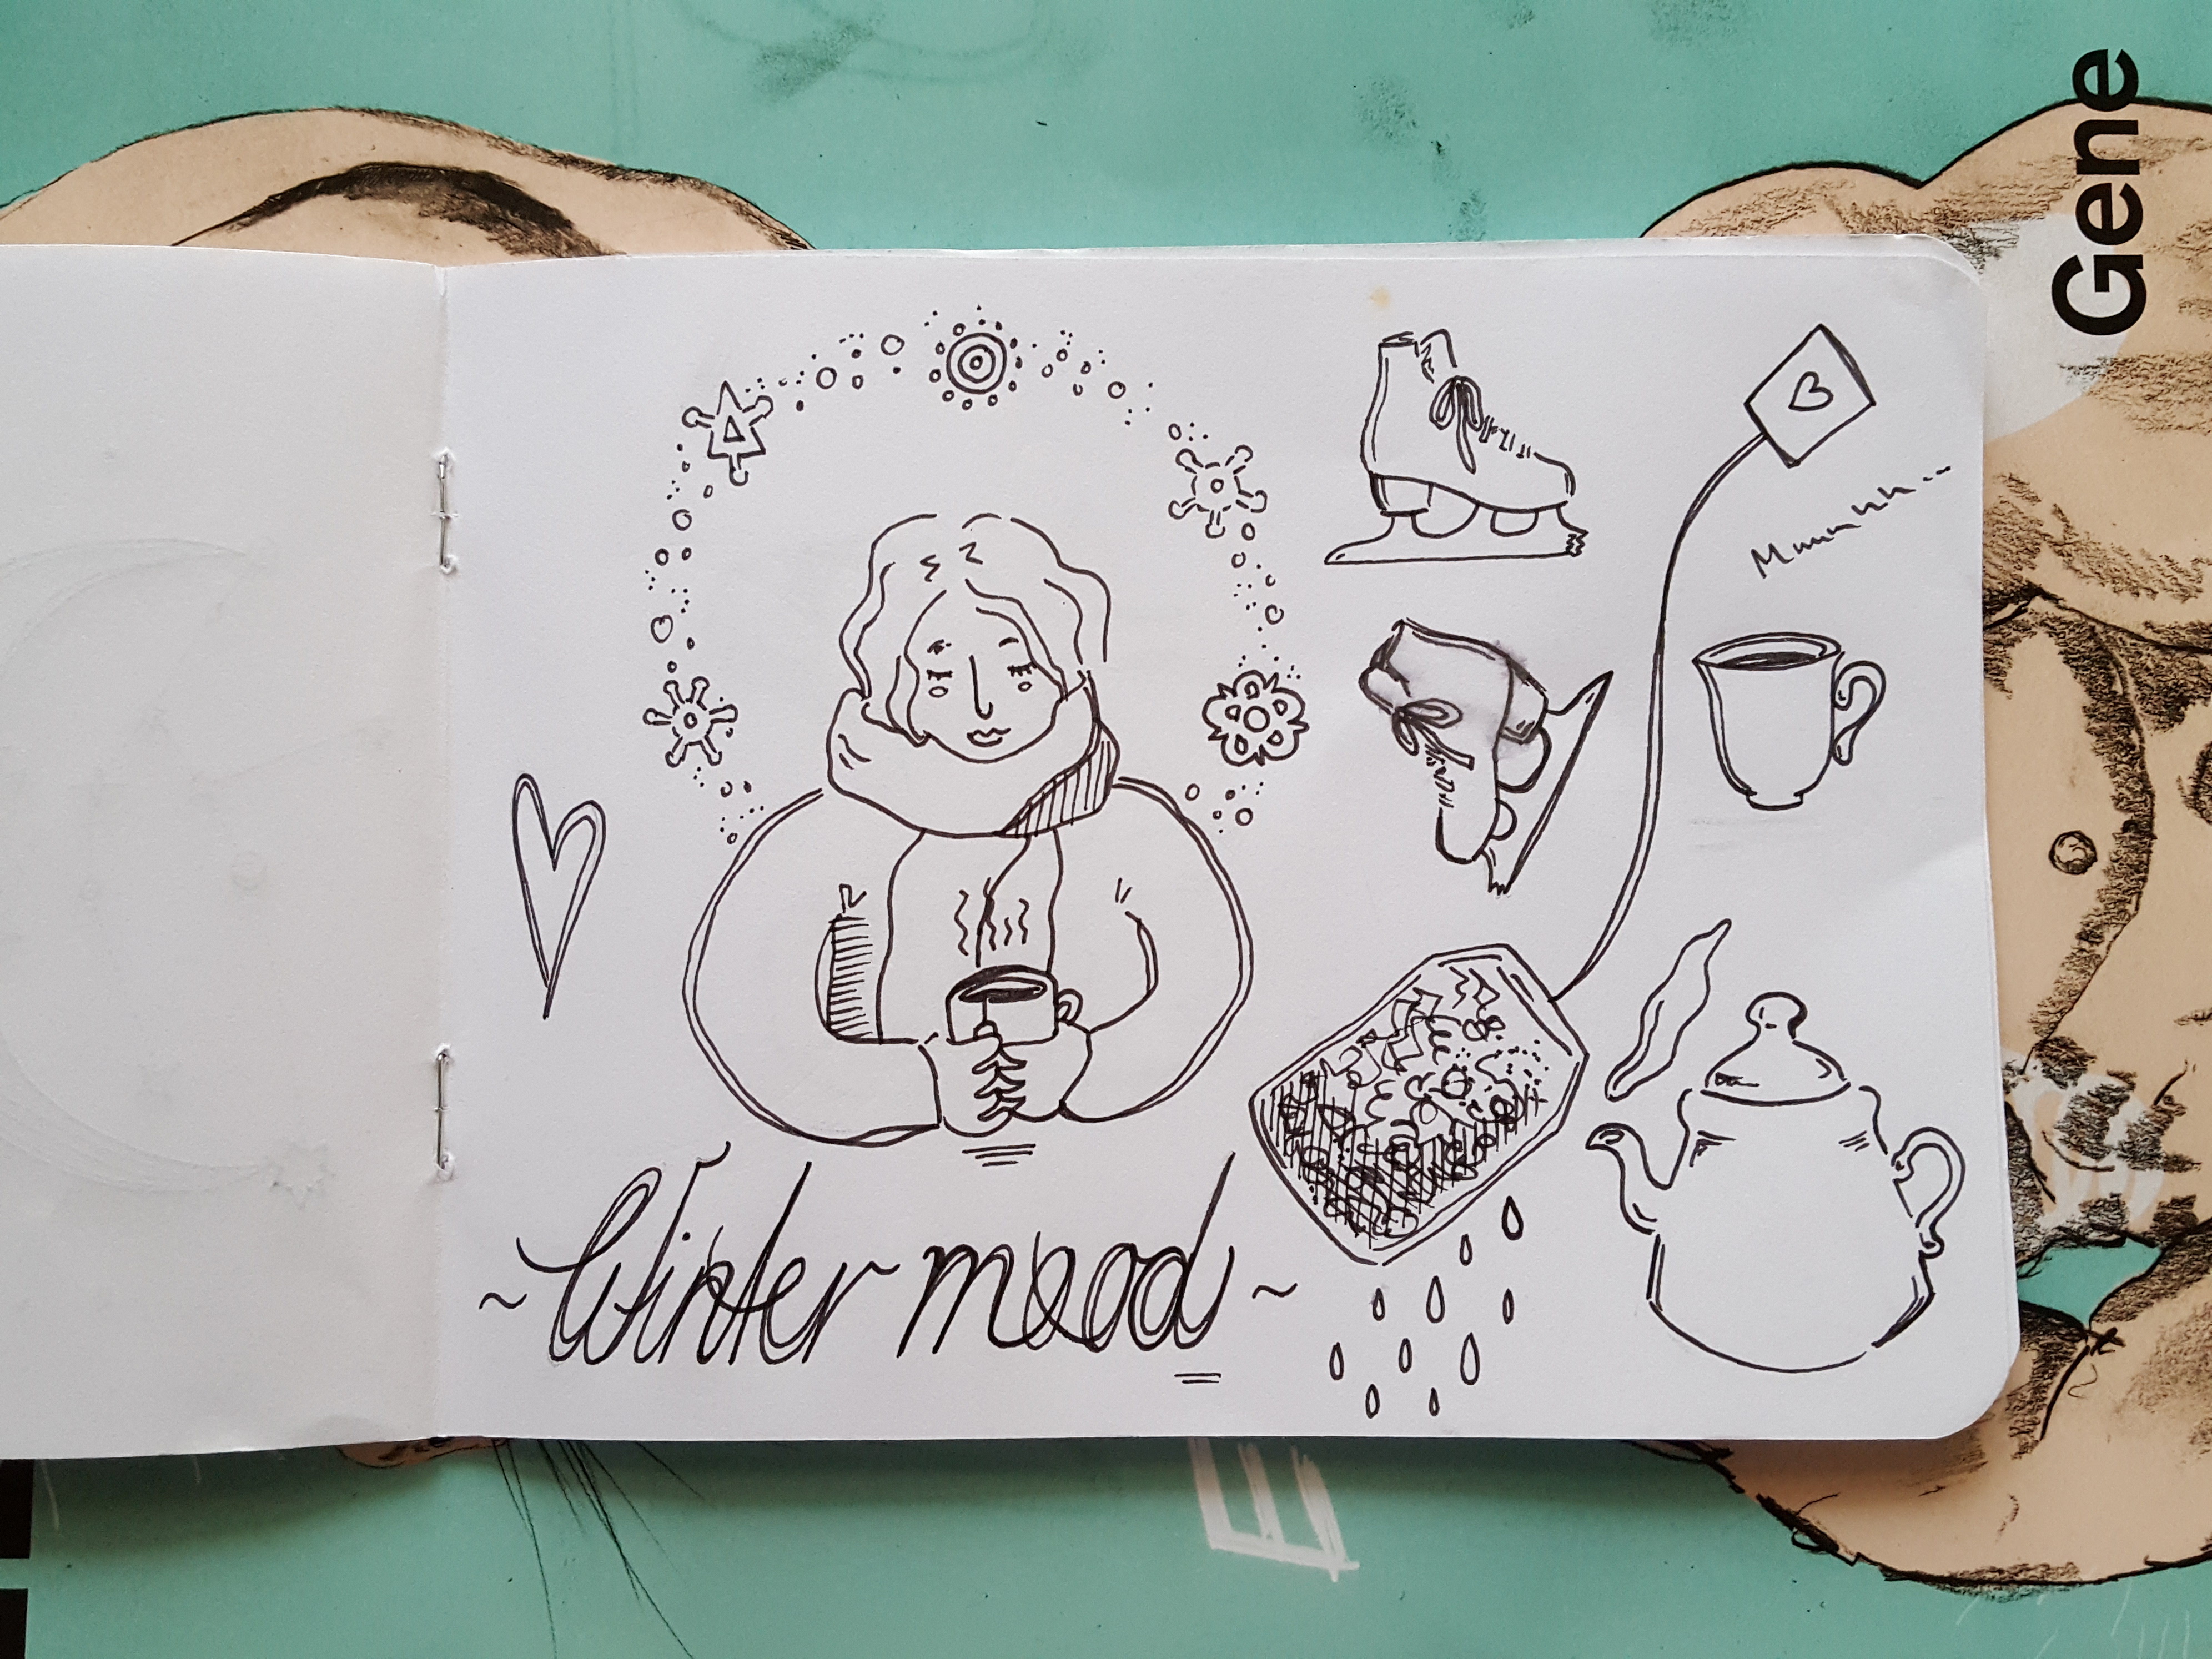 Gene
Mmmhhh...
~Winter mood~